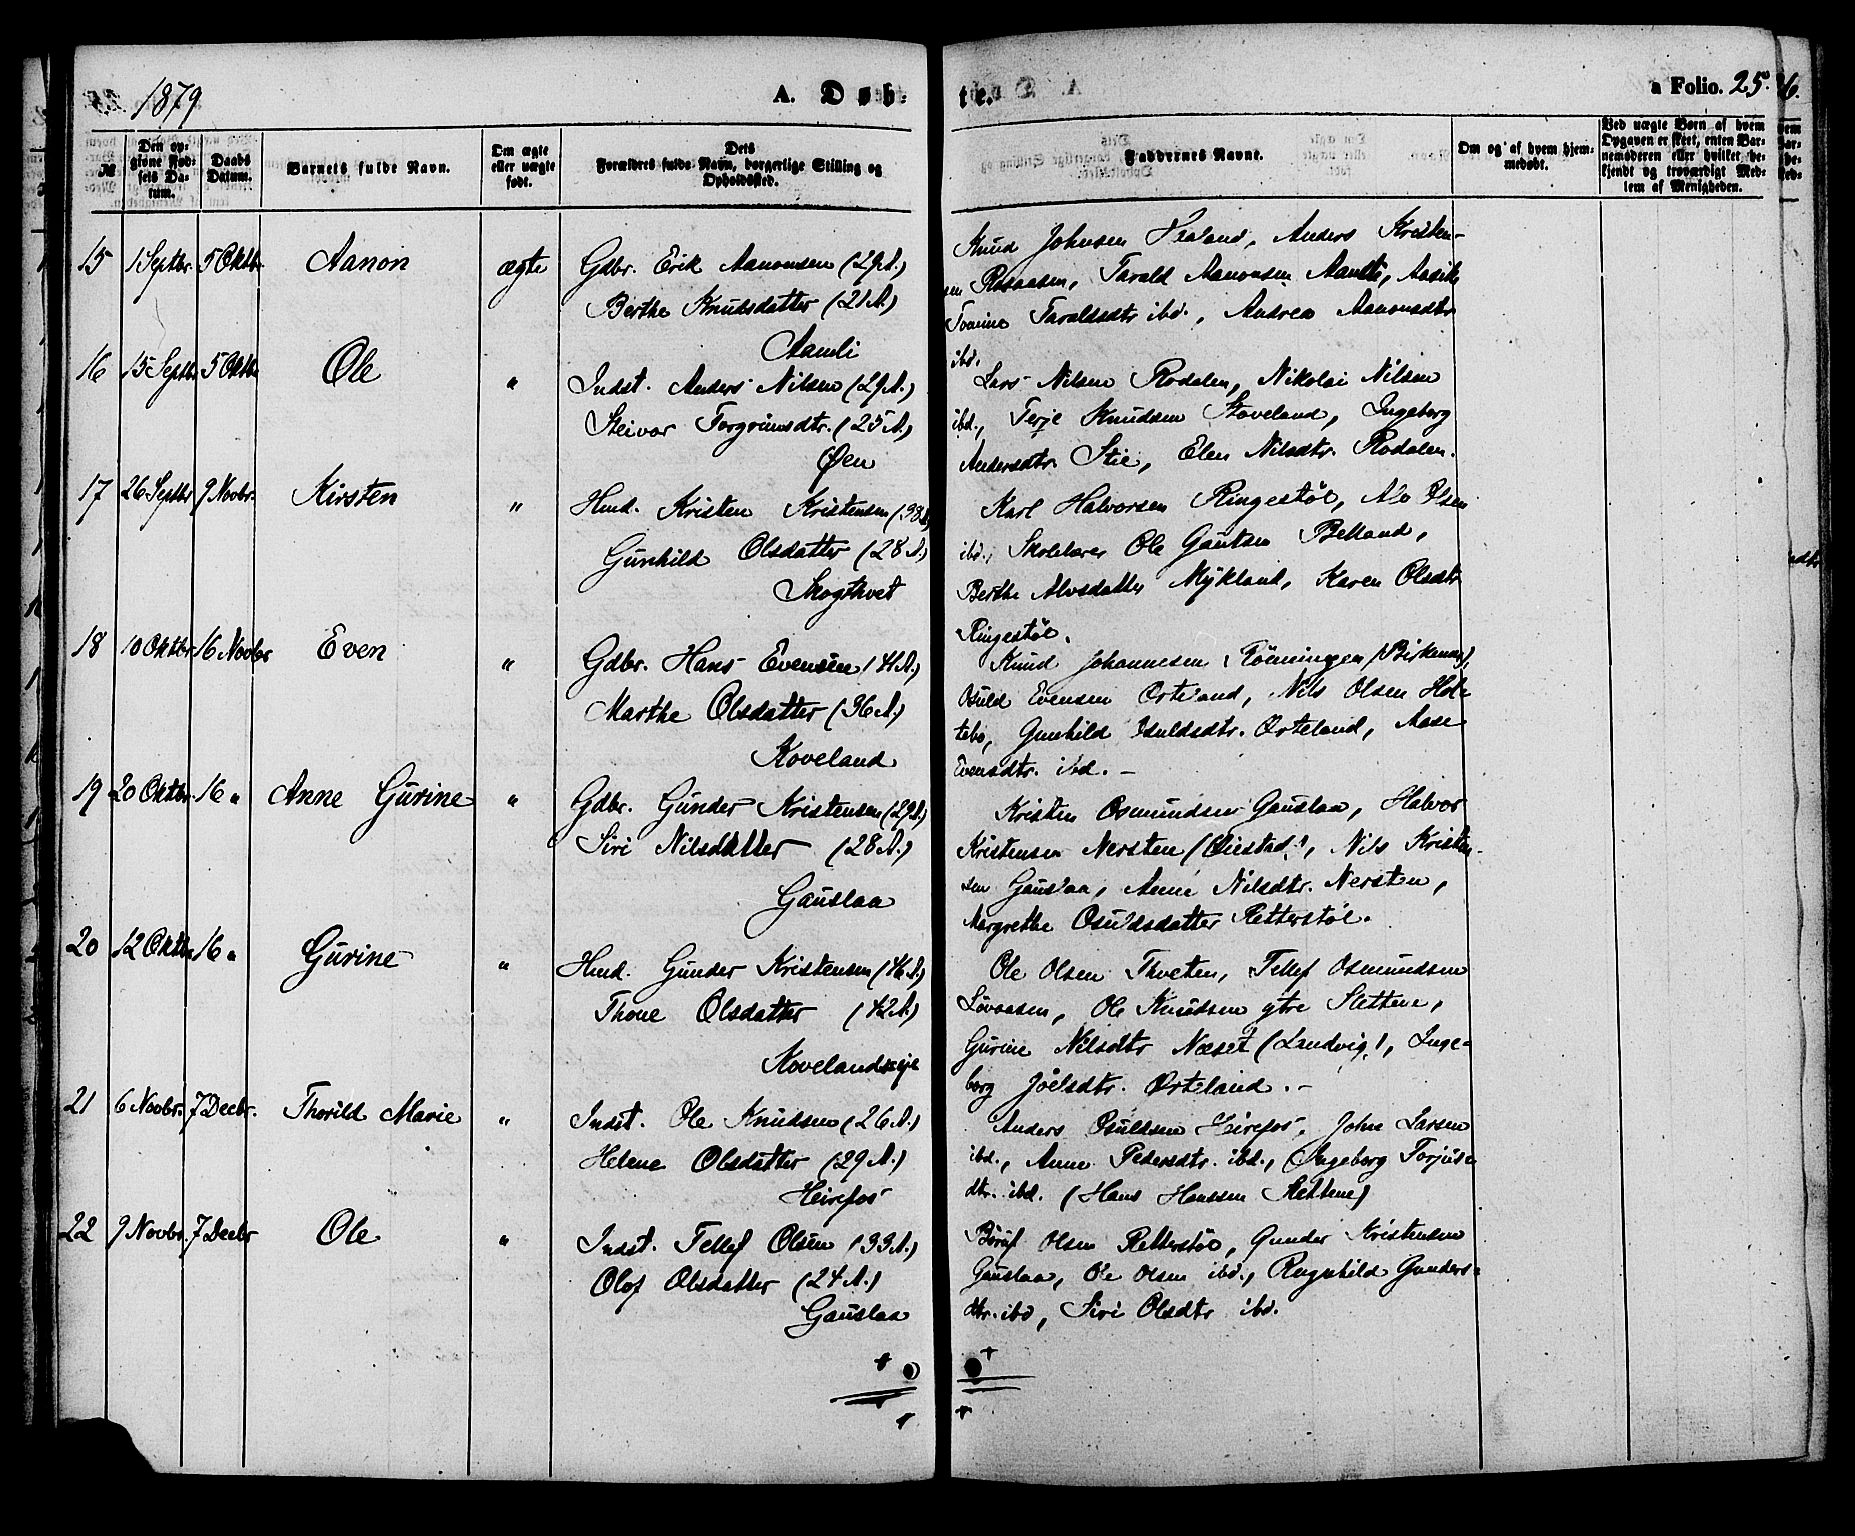 1879
A. Døb-
te.
a Folio. 25.
№
Den op-
givne Fød-
sels Da-
tum.
Daabs
Datum.
Barnets fulde Navn.
Om ægte
eller uægte
født.
Dets
Forældres fulde Navn, borgerlige Stilling og
Opholdssted.
Faddernes Navne.
Om og af hvem hjem-
medøbt.
Ved uægte Børn af hvem
Opgaven er skeet, enten Bar-
nemoderen eller hvilket be-
kjendt og troværdigt Med-
lem af Menigheden.
15 1 Septbr. 5 Oktbr. Aanon ægte Gdbr. Erik Aanonsen (29 A.)
Berthe Knudsdatter (21 A.)
Aamli
Knud Johnsen Hialand, Anders Kristen-
sen Risaasen, Tarald Aanonsen Aamli,
Tomine Taraldsdtr ibd., Andrea Aanonsdtr
ibd.
16 15 Septbr. 5 Oktbr. Ole " Indst. Anders Nilsen (29 A.)
Steivor Torgrimsdtr. (25 A.)
Øen
Lars Nilsen Rodalen, Nikolai Nilsen
ibd., Terje Knudsen Stoveland, Ingeborg
Andersdtr. Stie, Elen Nilsdtr. Rodalen.
17 26 Septbr 9 Novbr. Kirsten " Hmd. Kristen Kristensen (38 A)
Gunhild Olsdatter (28 A.)
Skogthvet
Karl Halvorsen Ringestøl, Alv Olsen
ibd., Skolelærer Ole Gautsen Belland,
Berthe Alvsdatter Mykland, Karen Olsdtr
Ringestøl.
18 10 Oktbr. 16 Novbr Even " Gdbr. Hans Evensen (41 A.)
Marthe Olsdatter (36 A.)
Koveland
Knud Johannesen Flømningen (Birkenæs),
Osuld Evensen Ørteland, Nils Olsen Hol-
tebo, Gunhild Osuldsdtr. Ørteland, Aase
Evensdtr. ibd. –
19 20 Oktbr. 16 " Anne Gurine " Gdbr. Gunder Kristensen (29 A.)
Siri Nilsdatter (28 A.)
Gauslaa
Kristen Osmundsen Gauslaa, Halvor
Kristensen Nersten (Øiestad), Nils Kristen-
sen Gauslaa, Anne Nilsdtr. Nersten,
Margrethe Osuldsdatter Retterstøl.
20 12 Oktbr 16 " Gurine " Hmd. Gunder Kristensen (46 A.)
Thone Olsdatter (42 A.)
Kovelandseje
Ole Olsen Thveten, Tellef Osmundsen
Løvaasen, Ole Knudsen ytre Slettene,
Gurine Nilsdtr Næset (Landvig), Inge-
borg Joelsdtr. Ørteland. –
21 6 Novbr. 7 Decbr. Thorild Marie " Indst. Ole Knudsen (26 A.)
Helene Olsdatter (29 A.)
Heirefos
Anders Osuldsen Heirefos, John Larsen
ibd., Anne Pedersdtr. ibd., Ingeborg Torjus-
dtr. ibd. (Hans Hanssen Slettene)
22 9 Novbr. 7 Decbr Ole " Indst. Tellef Olsen (33 A.)
Olof Olsdatter (24 A.)
Gauslaa
Børuf Olsen Retterstøl, Gunder Kristensen
Gauslaa, Ole Olsen ibd., Ragnhild Gunders-
dtr. ibd, Siri Olsdtr ibd.